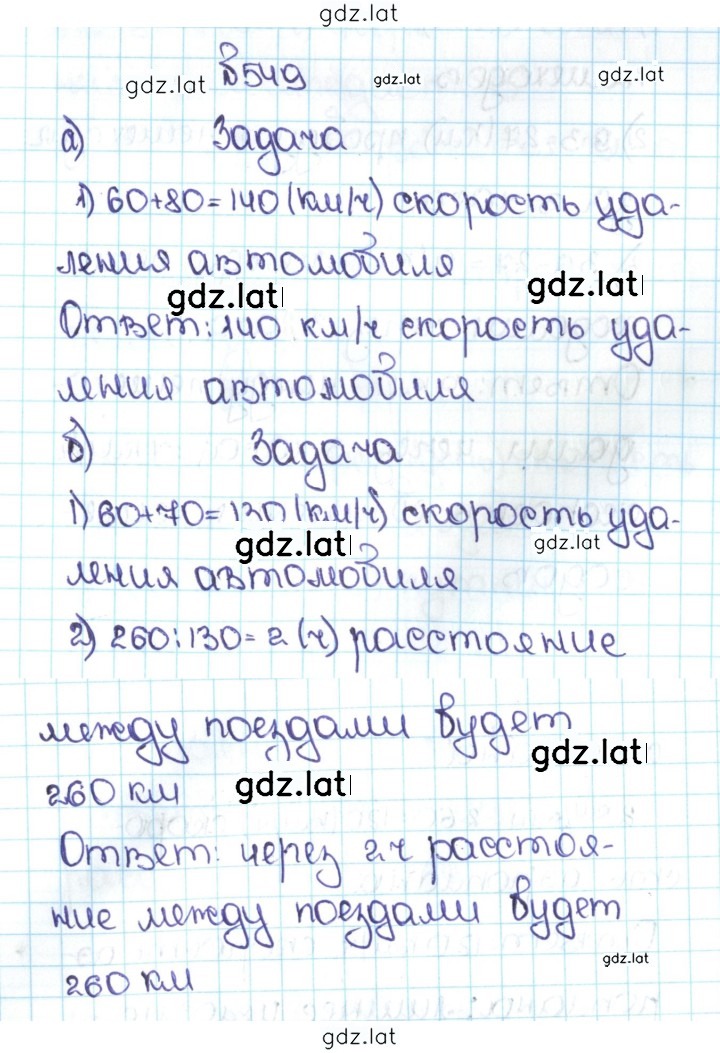 gdz.lat
№549
gdz.lat gdz.lat gdz.lat
а) Задача
1) 60+80=140 (км/ч) скорость уда-
ления автомобиля
gdz.lat gdz.lat
Ответ: 140 км/ч скорость уда-
ления автомобиля
б) Задача
1) 60+70=130 (км/ч) скорость уда-
gdz.lat gdz.lat
ления автомобиля
2) 260:130=2 (ч) расстояние
между поездами будет
gdz.lat
260 км
gdz.lat
Ответ: через 2 ч расстоя-
ние между поездами будет
gdz.lat
260 км
gdz.lat